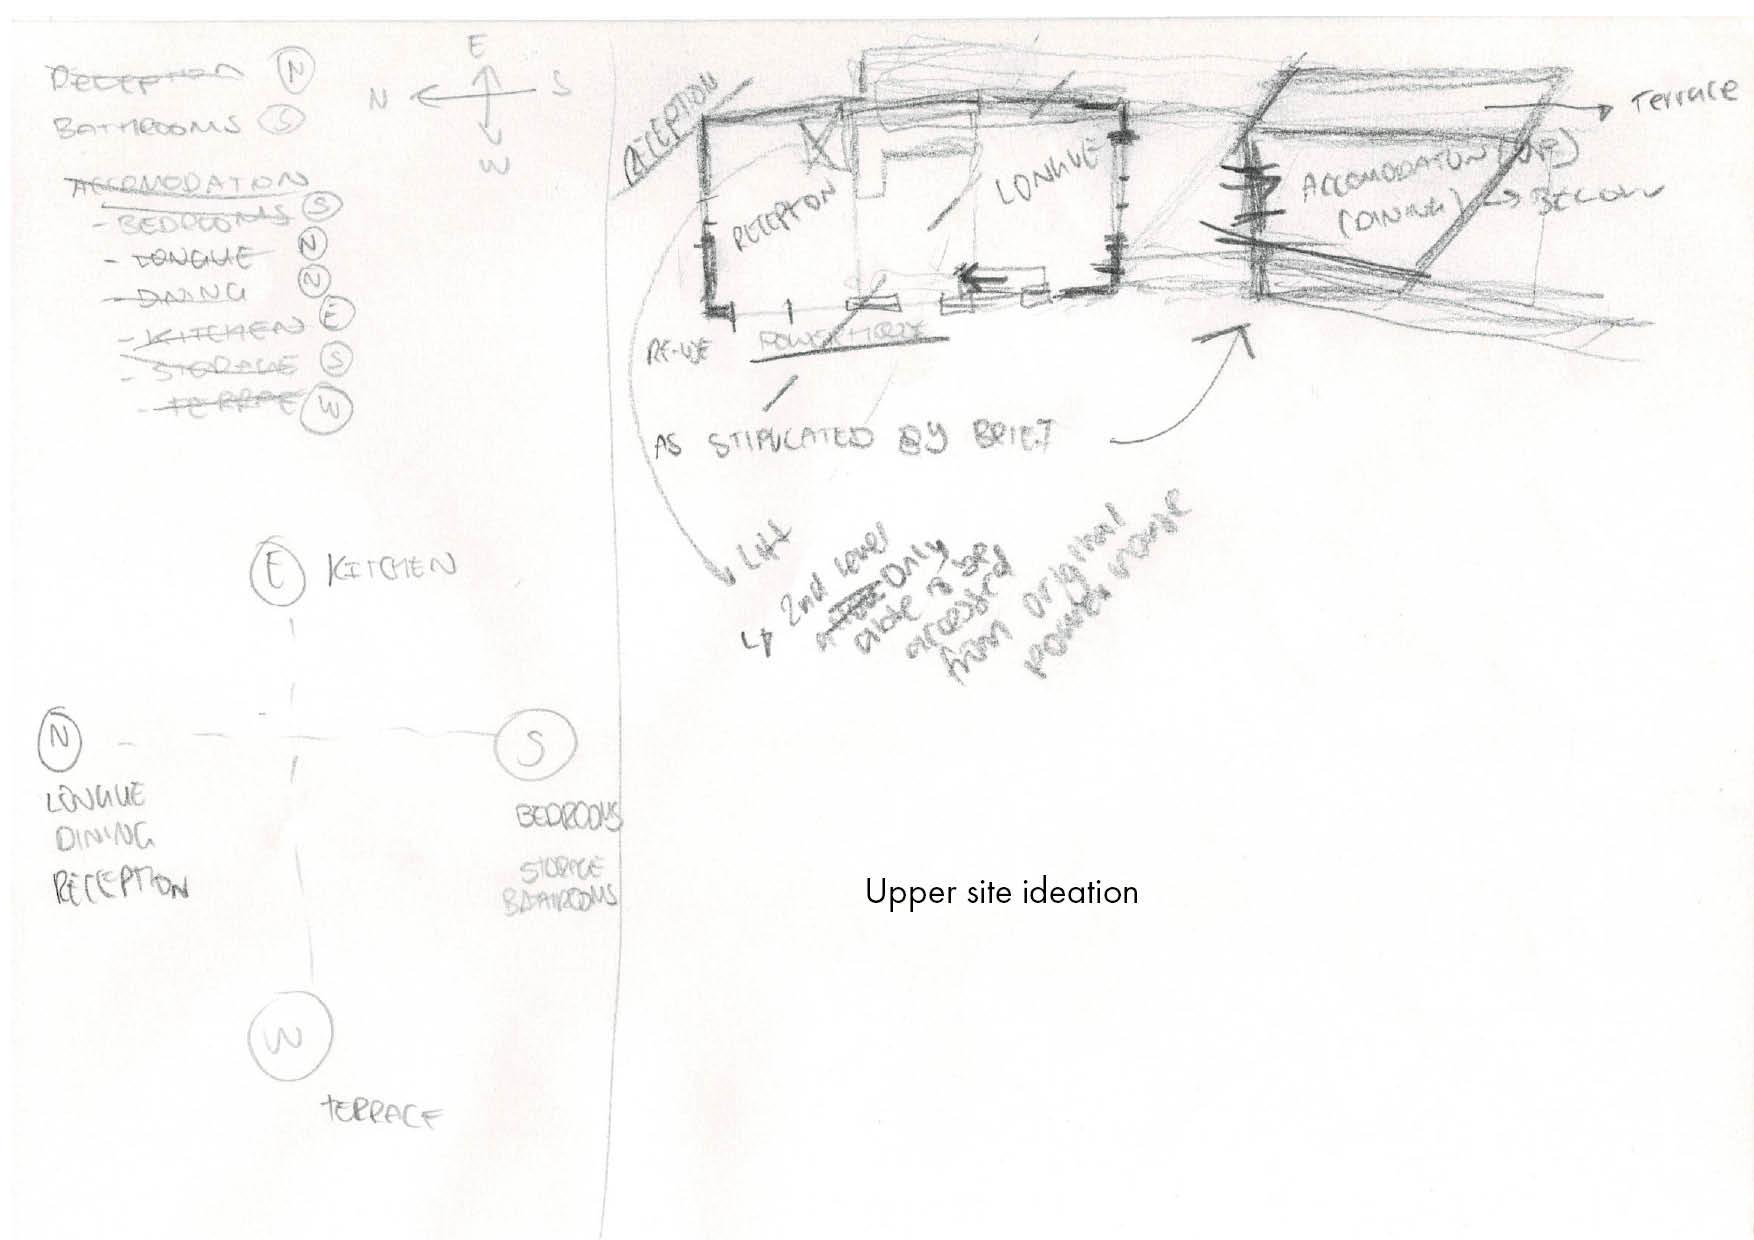 RECEPTION N
BATHROOMS S
ACCOMODATION
- BEDROOMS S
- LONGUE N
- DINING N
- KITCHEN E
- STORAGE S
- TERRACE W
E
N S
W
E KITCHEN
N
S
LONGUE
DINING
RECEPTION
BEDROOMS
STORAGE
BATHROOMS
W
TERRACE
RECEPTION
RECEPTION
LONGUE
ACCOMODATION (UP)
(DINING) → BELOW
Terrace
RE-USE POWERHOUSE
AS STIPULATED BY BRIEF
Lift
2nd level
only
able to be
accessed
from original
power house
Upper site ideation